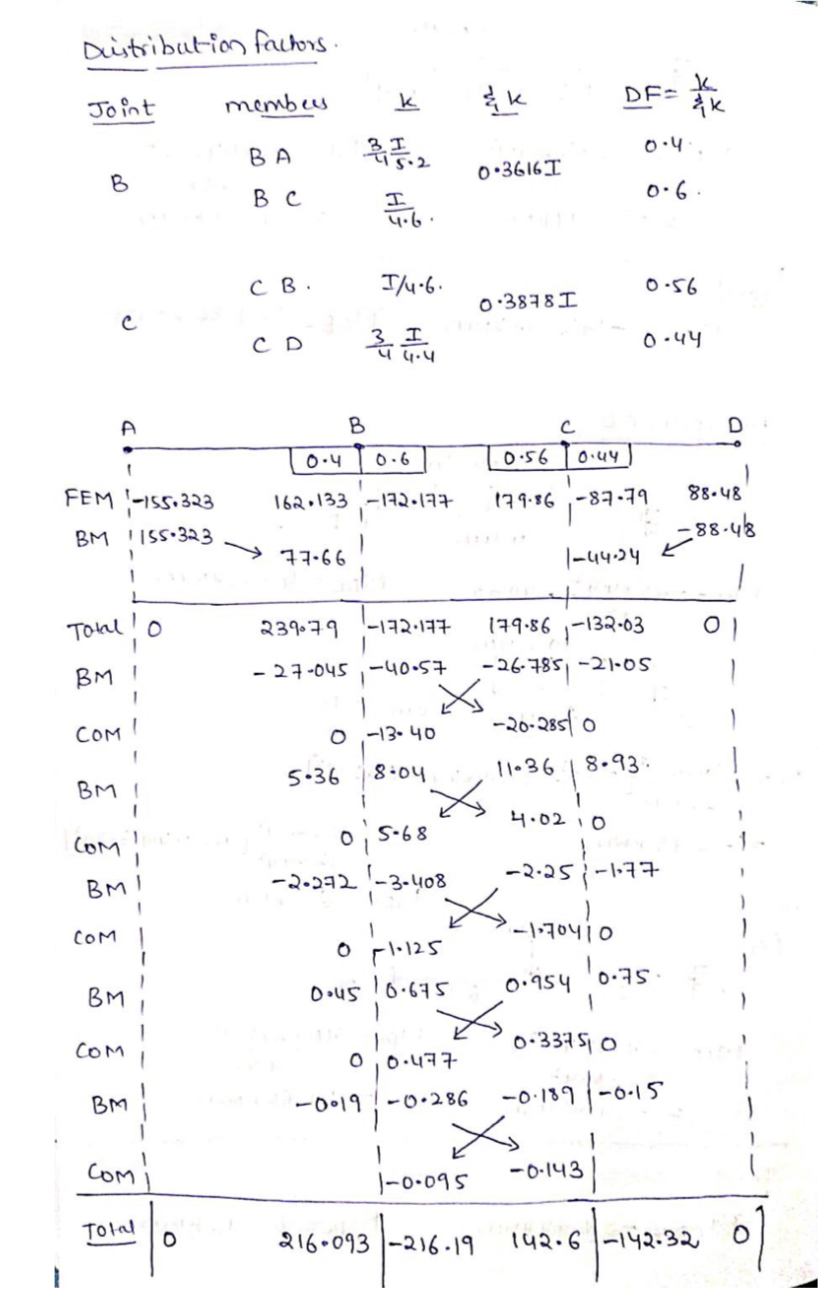 Distribution factors.
Joint members k ≤k DF= k/≤k
B A 3/4 I/5.2 0.4
B 0.3616I
B C I/4.6. 0.6.
C B. I/4.6. 0.56
C 0.3878I
C D 3/4 I/4.4 0.44
A B C D
0.4 0.6 0.56 0.44
FEM -155.323 162.133 -172.177 179.86 -87.79 88.48
BM 155.323 → 77.66 -44.24 ← -88.48
Total 0 239.79 -172.177 179.86 -132.03 0
BM -27.045 -40.57 -26.785 -21.05
COM 0 -13.40 -20.285 0
BM 5.36 8.04 11.36 8.93.
COM 0 5.68 4.02 0
BM -2.272 -3.408 -2.25 -1.77
COM 0 -1.125 -1.704 0
BM 0.45 0.675 0.954 0.75.
COM 0 0.477 0.3375 0
BM -0.19 -0.286 -0.189 -0.15
COM -0.095 -0.143
Total 0 216.093 -216.19 142.6 -142.32 0